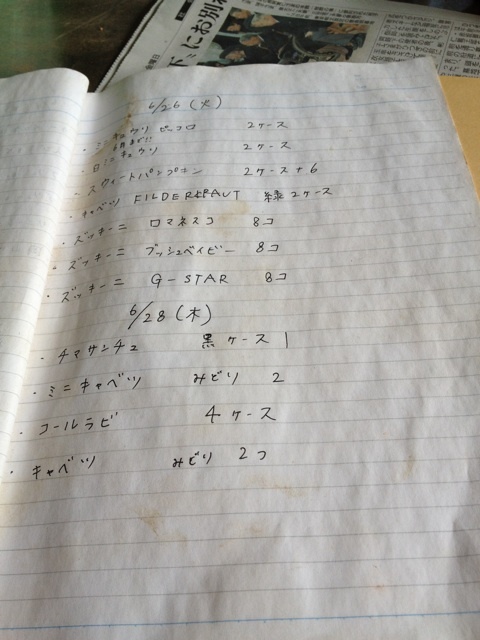 に お別れ
6/26 (火)
・ミニキュウリ ピッコロ 2ケース
・白ミニキュウリ 2ケース
・スウィートパンプキン 2ケース+6
・キャベツ FILDERKRAUT 緑 2ケース
・ズッキーニ ロマネスコ 8コ
・ズッキーニ ブッシュベイビー 8コ
・ズッキーニ G-STAR 8コ
6/28 (木)
・チマサンチュ 黒ケース 1
・ミニキャベツ みどり 2
・コールラビ 4ケース
・キャベツ みどり 2コ